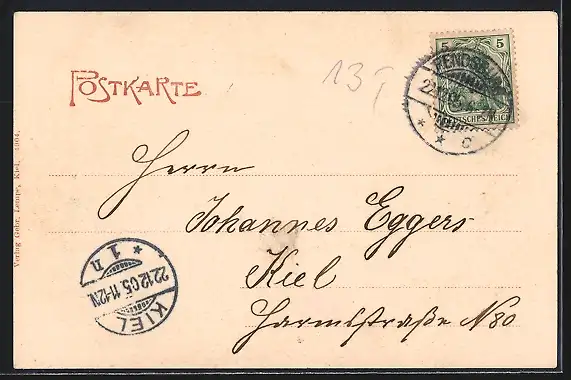 POSTKARTE
13 T
5 5
RENDSBURG
22
DEUTSCHES REICH
* * c
Herrn
Johannes Eggers
Kiel
Harmsstraße N 80
* 1 n
22.12.05. 11-12N.
KIEL
Verlag Gebr. Lempe, Kiel. 4904.